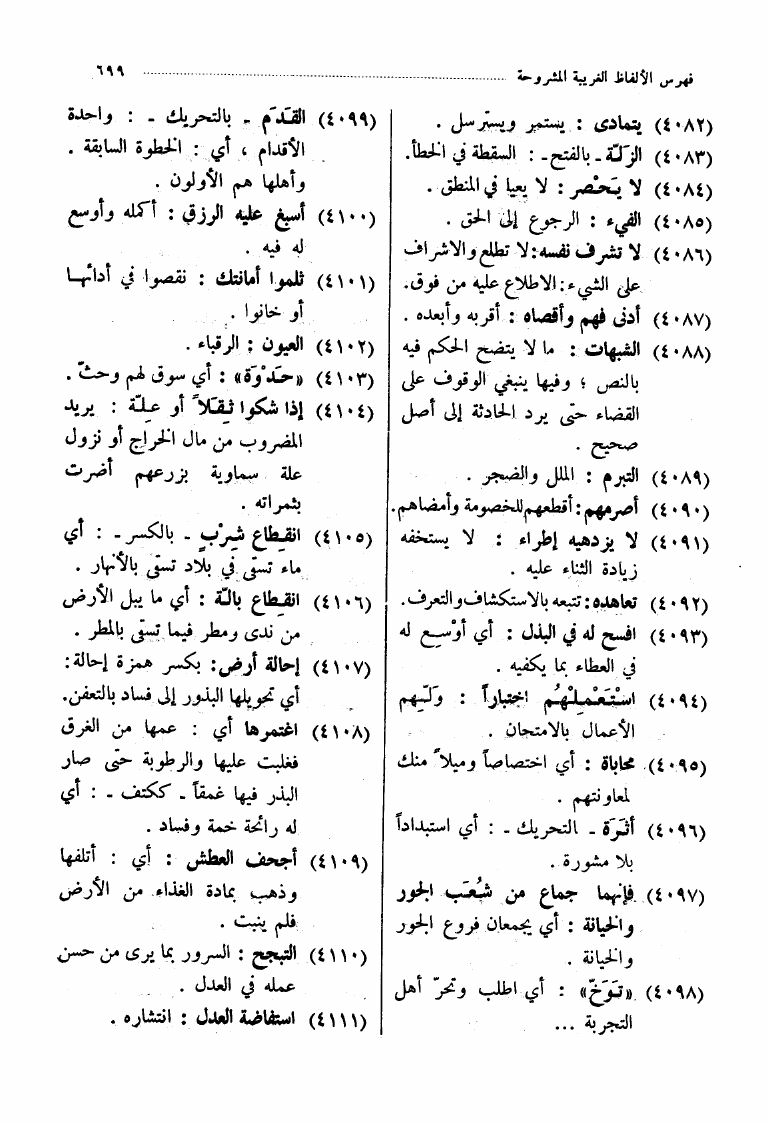 فهرس الألفاظ الغريبة المشروحة ........ ٦٩٩
(٤٠٨٢) يتمادى : يستمر ويسترسل .
(٤٠٨٣) الزلّة ـ بالفتح ـ : السقطة في الخطأ.
(٤٠٨٤) لا يَحْصر : لا يعيا في المنطق .
(٤٠٨٥) الفيء : الرجوع إلى الحق .
(٤٠٨٦) لا تشرف نفسه : لا تطلع والاشراف
على الشيء : الاطلاع عليه من فوق.
(٤٠٨٧) أدنى فهم وأقصاه : أقربه وأبعده .
(٤٠٨٨) الشبهات : ما لا يتضح الحكم فيه
بالنص ؛ وفيها ينبغي الوقوف على
القضاء حتى يرد الحادثة إلى أصل
صحيح .
(٤٠٨٩) التبرم : الملل والضجر .
(٤٠٩٠) أصرمهم : أقطعهم للخصومة وأمضاهم.
(٤٠٩١) لا يزدهيه إطراء : لا يستخفه
زيادة الثناء عليه .
(٤٠٩٢) تعاهده : تتبعه بالاستكشاف والتعرف.
(٤٠٩٣) افسح له في البذل : أي أوْسع له
في العطاء بما يكفيه .
(٤٠٩٤) اسْتَعْمِلْهُم اختباراً : وَلّهم
الأعمال بالامتحان .
(٤٠٩٥) محاباة : أي اختصاصاً وميلاً منك
لمعاونتهم .
(٤٠٩٦) أثَرَة ـ بالتحريك ـ : أي استبداداً
بلا مشورة .
(٤٠٩٧) فإنهما جماع من شُعَب الجور
والخيانة : أي يجمعان فروع الجور
والخيانة .
(٤٠٩٨) «تَوَخّ» : أي اطلب وتحرّ أهل
التجربة ...
(٤٠٩٩) القَدَم ـ بالتحريك ـ : واحدة
الأقدام ، أي : الخطوة السابقة .
وأهلها هم الأولون .
(٤١٠٠) أسبغ عليه الرزق : أكمله وأوسع
له فيه .
(٤١٠١) ثلموا أمانتك : نقصوا في أدائها
أو خانوا .
(٤١٠٢) العيون : الرقباء .
(٤١٠٣) «حَدْوَة» : أي سوق لهم وحثّ .
(٤١٠٤) إذا شكوا ثِقَلاً أو عِلّة : يريد
المضروب من مال الخراج أو نزول
علة سماوية بزرعهم أضرت
بثمراته .
(٤١٠٥) انقِطاع شِرْبٍ ـ بالكسر ـ : أي
ماء تسقى في بلاد تسقى بالأنهار .
(٤١٠٦) انقِطاع بالّة : أي ما يبل الأرض
من ندى ومطر فيما تسقى بالمطر .
(٤١٠٧) إحالة أرض : بكسر همزة إحالة :
أي تحويلها البذور إلى فساد بالتعفن.
(٤١٠٨) اغتمرها أي : عمها من الغرق
فغلبت عليها والرطوبة حتى صار
البذر فيها غمقاً ـ ككتف ـ : أي
له رائحة خمة وفساد .
(٤١٠٩) أجحف العطش : أي : أتلفها
وذهب بمادة الغذاء من الأرض
فلم ينبت .
(٤١١٠) التبجح : السرور بما يرى من حسن
عمله في العدل .
(٤١١١) استفاضة العدل : انتشاره .